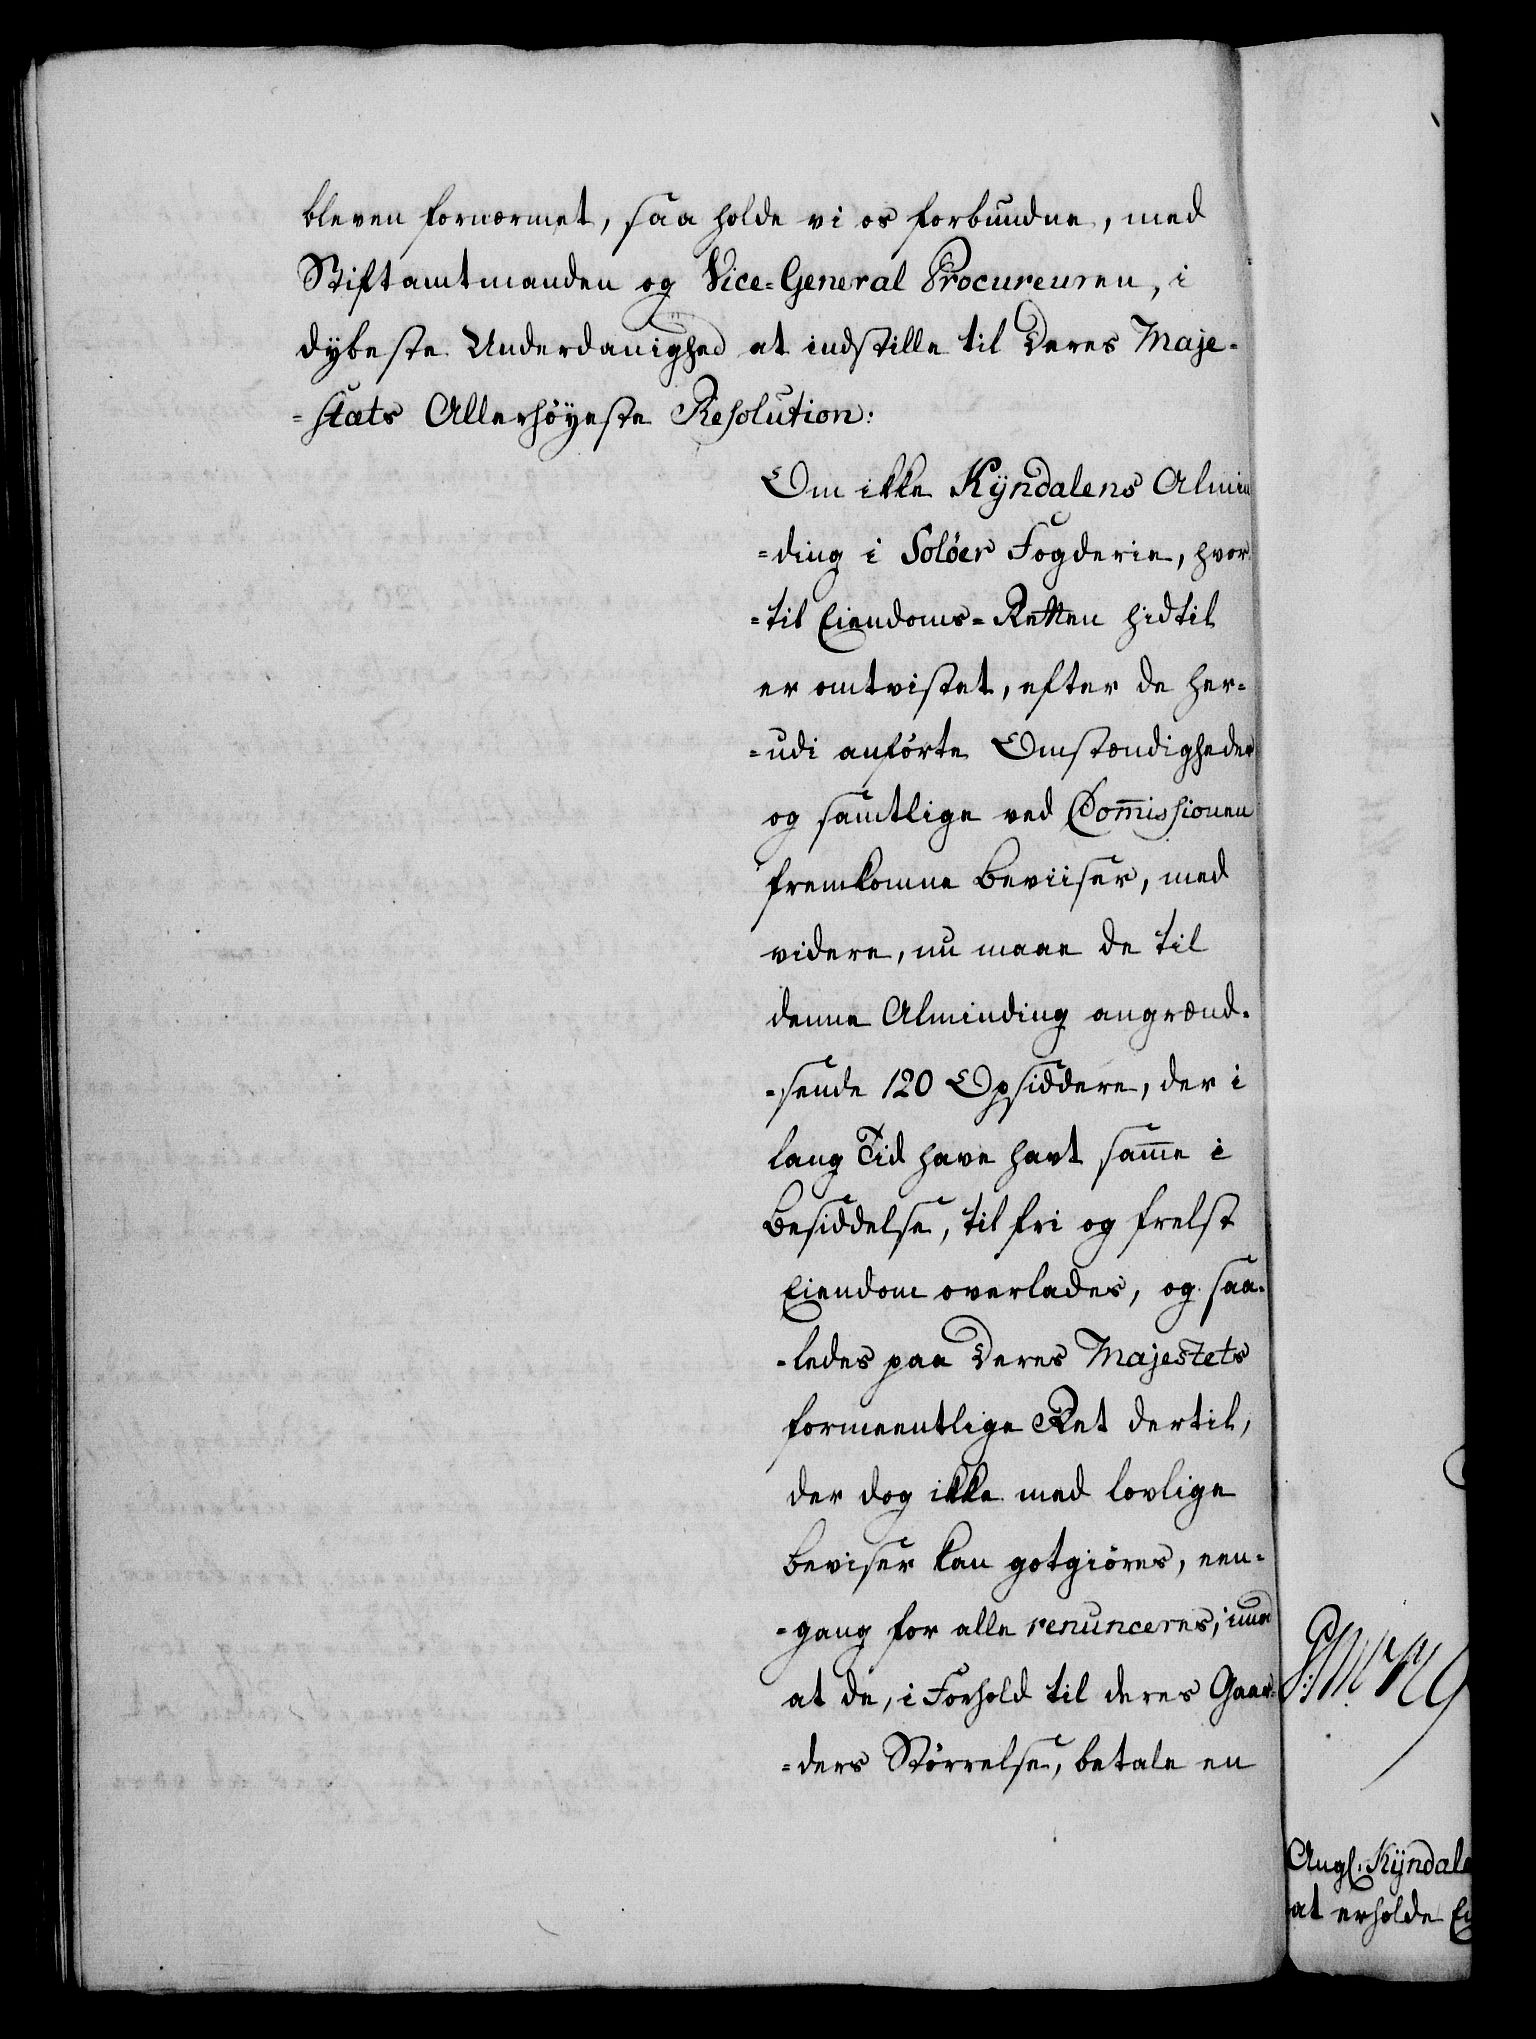 bleven fornærmet, saa holde vi os forbundne, med
Stiftamtmanden og Vice-General Procureuren, i
dybeste Underdanighed at indstille til Deres Maje-
-stæts Allerhøyeste Resolution:
Om ikke Kÿndalens Almin
-ding i Soløer Fogderie, hvor-
-til Eiendoms-Retten hidtil
er omtvistet, efter de her-
-udi anførte Omstændigheder
og samtlige ved Com̄issionen
fremkomne Beviiser, med
videre, nu maae de til
denne Alminding angrænd-
-sende 120 Opsiddere, der i
lang Tid have havt sam̄e i
Besiddelse, til fri og frelst
Eiendom overlades, og saa-
-ledes paa Deres Majestets
formeentlige Ret dertil,
der dog ikke med lovlige
Beviser kan gotgiøres, een-
-gang for alle renunceres; imod
at de, i Forhold til deres Gaar-
-ders Størrelse, betale en
Angl. Kÿndale
at erholde Ei